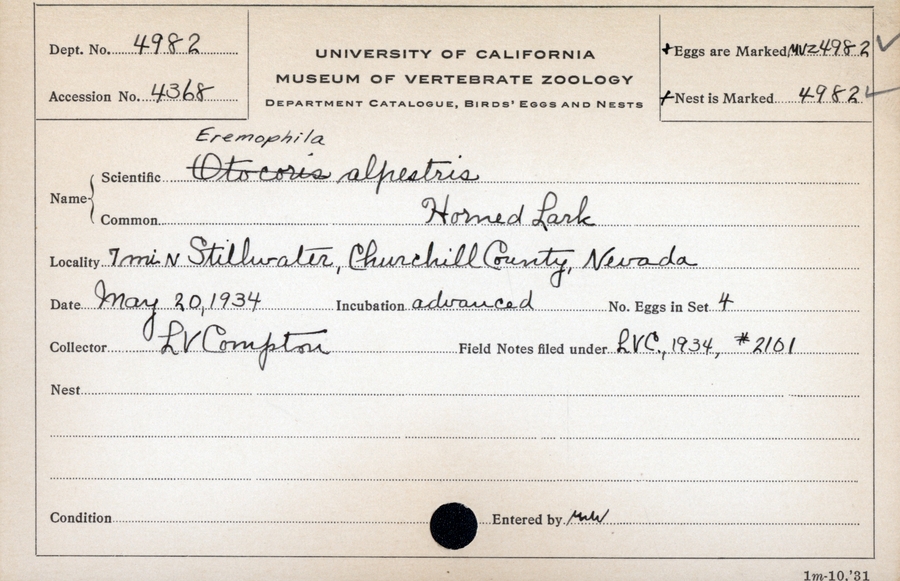 Dept. No. 4982
Accession No. 4368
UNIVERSITY OF CALIFORNIA
MUSEUM OF VERTEBRATE ZOOLOGY
DEPARTMENT CATALOGUE, BIRDS' EGGS AND NESTS
+ Eggs are Marked MVZ4982 ✓
+ Nest is Marked 4982 ✓
Eremophila
Name { Scientific Otocoris alpestris
Common Horned Lark
Locality 7 mi N Stillwater, Churchill County, Nevada
Date May 20, 1934 Incubation advanced No. Eggs in Set 4
Collector LV Compton Field Notes filed under LVC., 1934, #2101
Nest
Condition Entered by
1m-10,'31